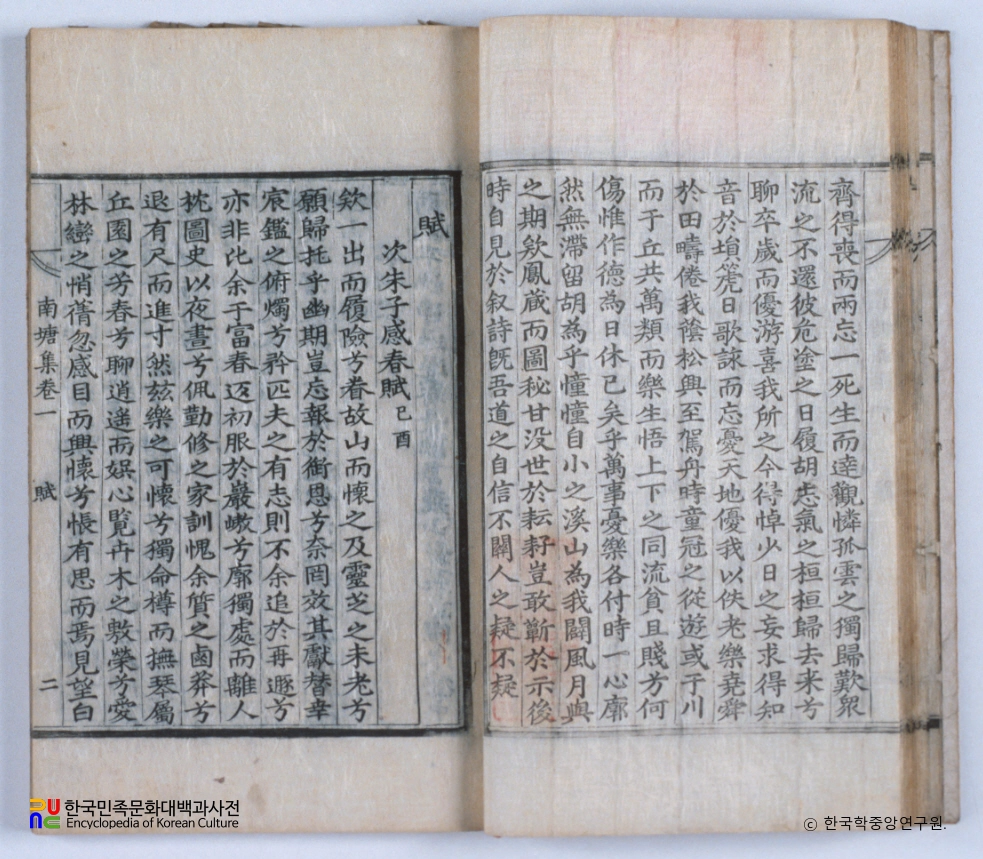 齊得喪而兩忘一死生而達觀憐孤雲之獨歸歎眾
流之不還彼危塗之日履胡忠氣之桓桓歸去来兮
聊卒歲而優游喜我所之今得悼少日之妄求得知
音於塤箎日歌詠而忘憂天地優我以佚老樂堯舜
於田疇倦我蔭松興至駕舟時童冠之從遊或于川
而于丘共萬類而樂生悟上下之同流貧且賤兮何
傷惟作德為日休已矣乎萬事憂樂各付時一心廓
然無滯留胡為乎憧憧自小之溪山為我闢風月與
之期欸鳳蔵而圖秘甘没世於耘耔豈敢蘄於示後
時自見於叙詩旣吾道之自信不關人之疑不疑
賦
次朱子感春賦 己酉
欸一出而履險兮眷故山而懷之及靈芝之未老兮
願歸托乎幽期豈忘報於銜恩兮奈罔效其獻替幸
宸鑑之俯燭兮矜匹夫之有志則不余追於再遯兮
亦非比余于富春返初服於巖畷兮廓獨處而離人
枕圖史以夜晝兮佩勤修之家訓愧余質之鹵莽兮
退有尺而進寸然玆樂之可懷兮獨命樽而撫琴屬
丘園之芳春兮聊逍遙而娱心覽卉木之敷榮兮愛
林巒之悄蒨忽感目而興懷兮悵有思而焉見望白
南塘集卷一 賦 二
한국민족문화대백과사전
Encyclopedia of Korean Culture
© 한국학중앙연구원.